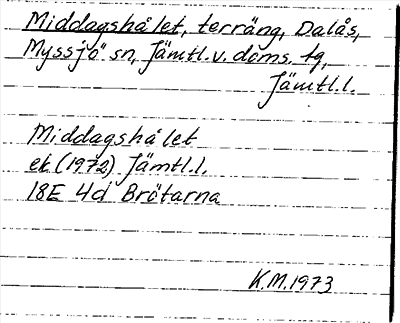 Middagshålet, terräng, Dalås,
Myssjö sn, Jämtl.v. doms. tg,
Jämtl.l.
Middagshålet
ek (1972) Jämtl.l.
18E 4d Brötarna
K.M.1973